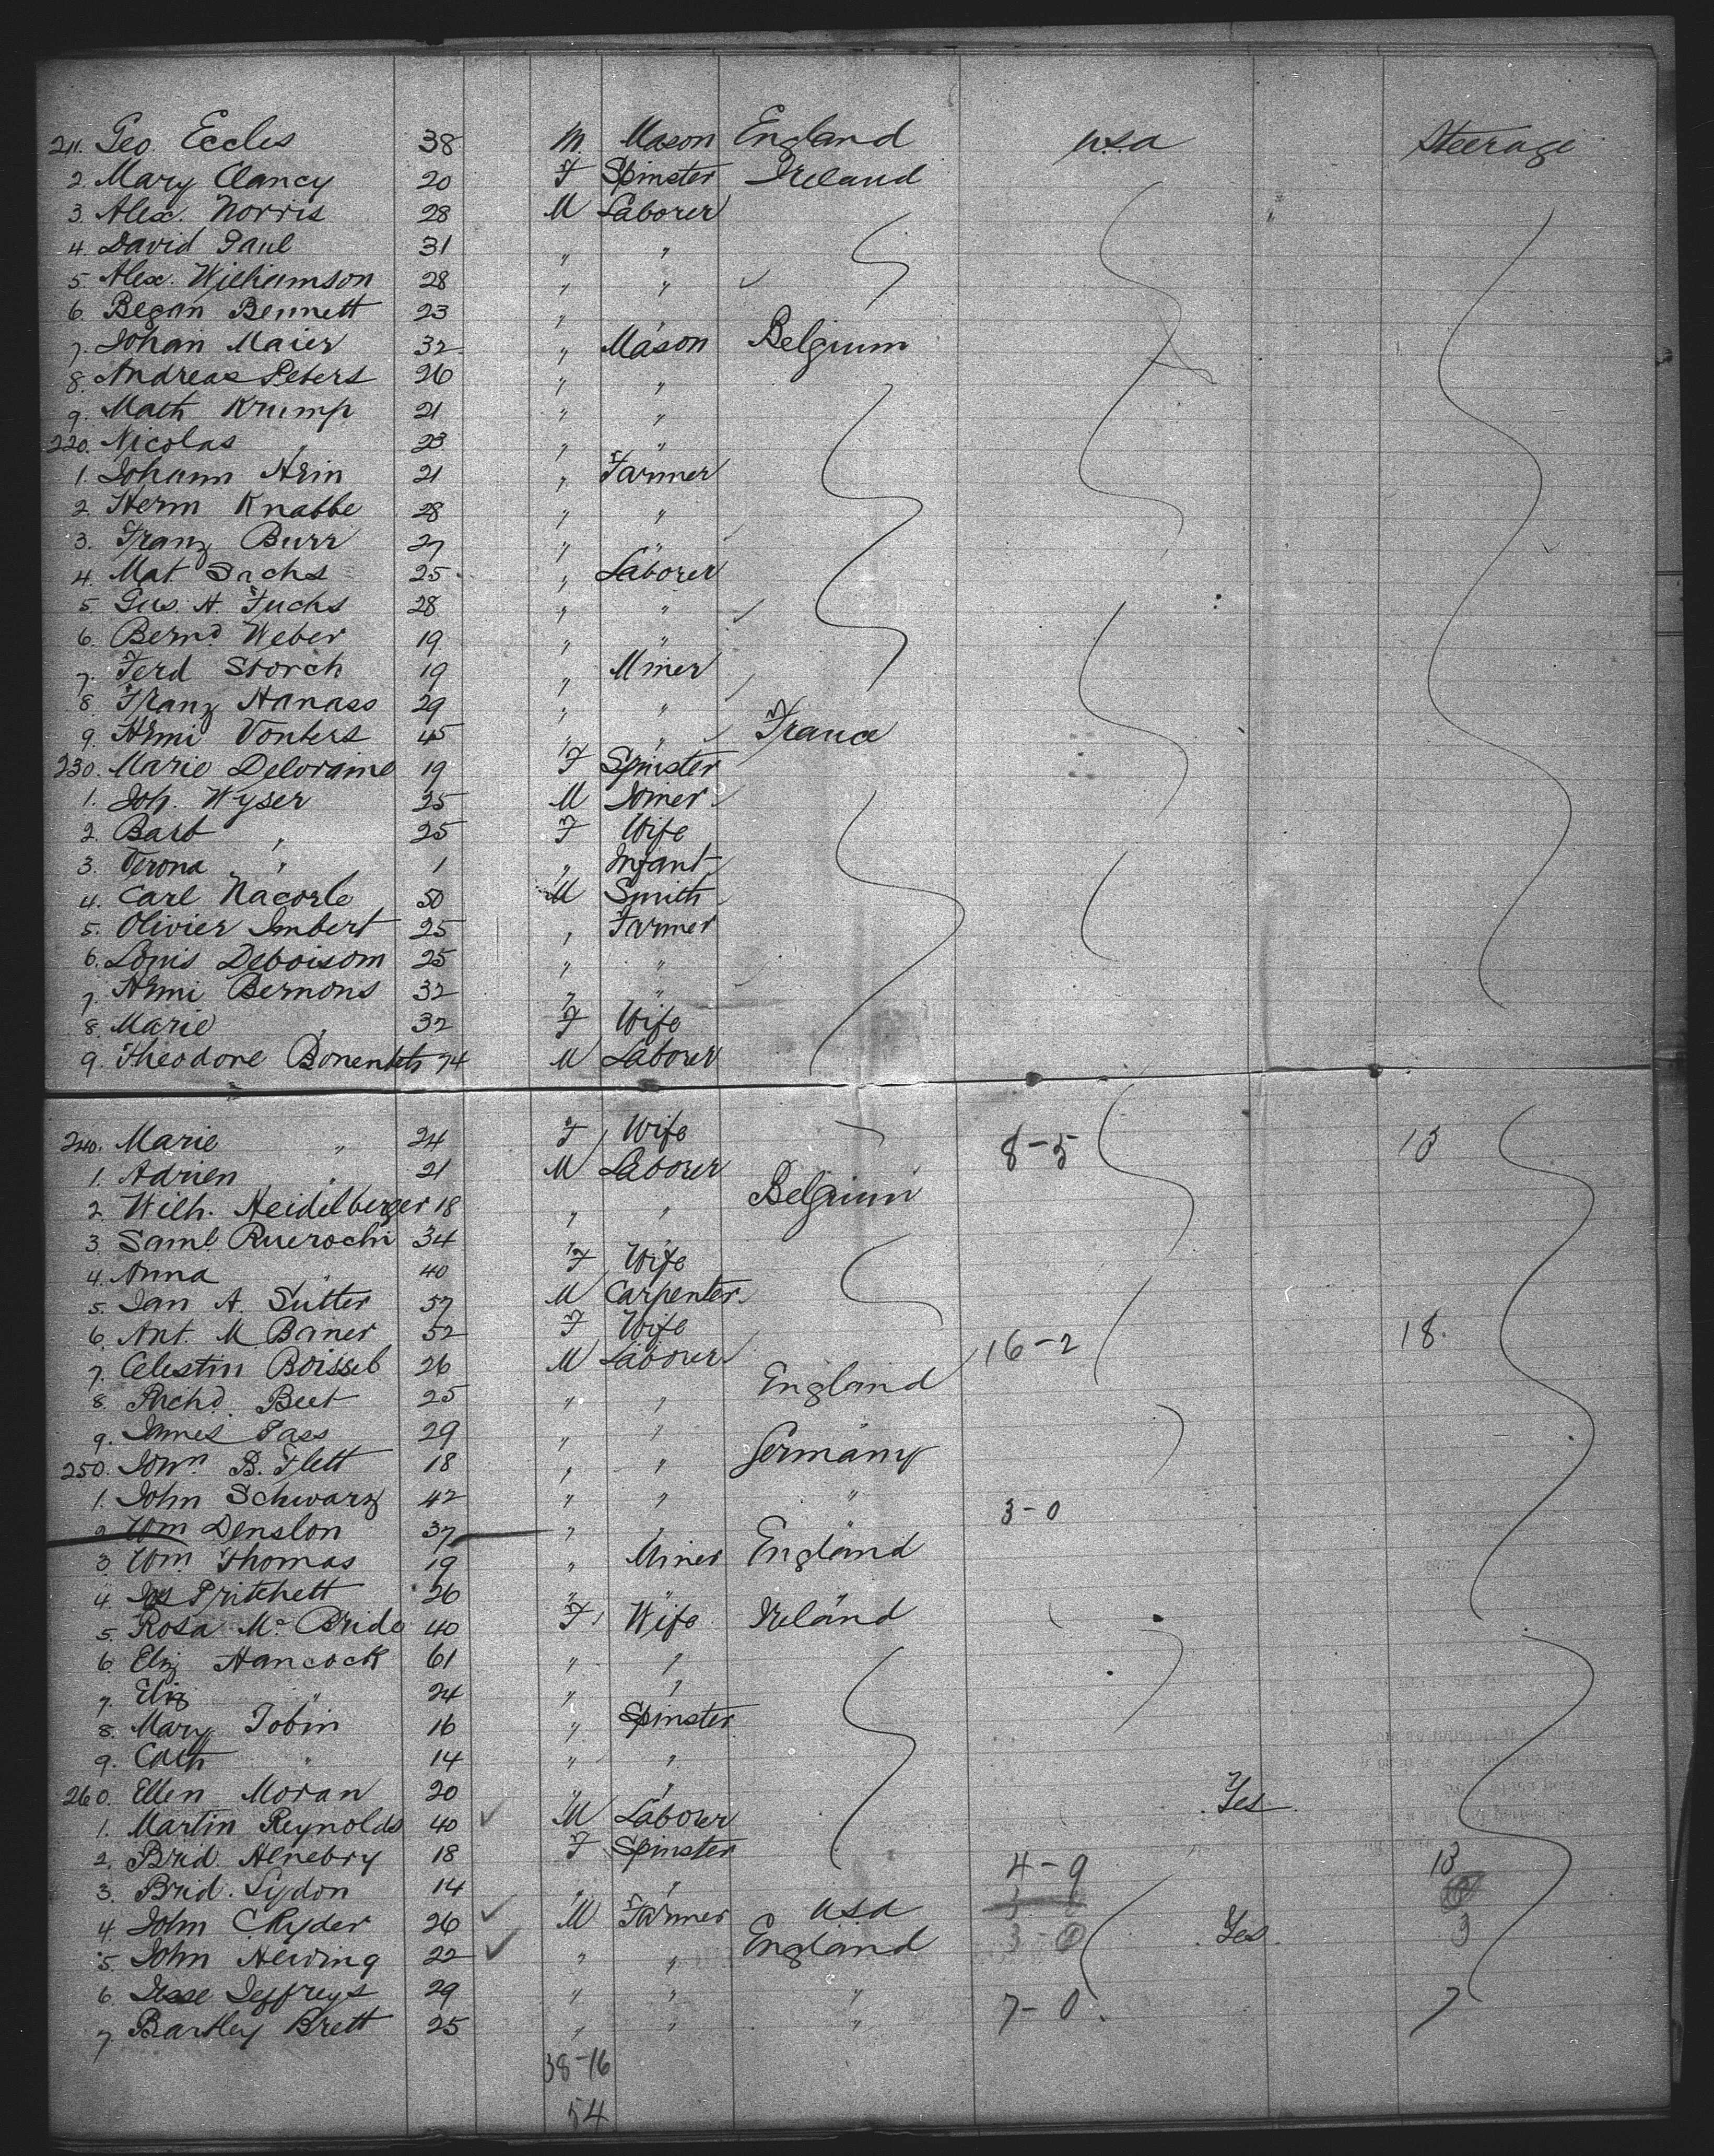 211. Geo. Eccles 38 M Mason England U.S.A Steerage
2. Mary Clancy 20 F Spinster Ireland
3. Alex. Norris 28 M Laborer
4. David Paul 31 " "
5. Alex. Williamson 28 " "
6. Began Bennett 23 " "
7. Johan Maier 32 " Mason Belgium
8. Andreas Peters 26 " "
9. Math Krump 21 " "
220. Nicolas " 23 " "
1. Johann Hein 21 " Farmer
2. Herm Knabbe 28 " "
3. Franz Burr 27 " "
4. Mat Sachs 25 " Laborer
5. Gus. H. Fuchs 28 " "
6. Bernd. Weber 19 " "
7. Ferd Storch 19 " Miner
8. Franz Hanass 29 " "
9. Henri Vonters 45 " " France
230. Marie Deloraine 19 F Spinster
1. Joh. Wyser 25 M Joiner
2. Barb " 25 F Wife
3. Verona " 1 " Infant
4. Carl Nacorle 50 M Smith
5. Olivier Imbert 25 " Farmer
6. Louis Deboisom 25 " "
7. Henri Bernons 32 " "
8. Marie " 32 F Wife
9. Theodore 74 M Laborer
240. Marie " 24 F Wife 8-5 13
1. Adrien " 21 M Laborer
2. Wilh. Heidelberger 18 " " Belgium
3. Saml. Ruerochi 34 " "
4. Anna " 40 F Wife
5. Jan A. Sutter 57 M Carpenter
6. Ant. M. Baner 52 F Wife
7. Celestin 26 M Laborer 16-2 18
8. Richd. Beet 25 " " England
9. James Pass 29 " "
250. Jown. B. Flett 18 " " Germany
1. John Schwarz 42 " " "
2. Wm Denslon 37 " " 3-0
3. Wm. Thomas 19 " Miner England
4. Jas Pritchett 26 " " "
5. Rosa McBride 40 F Wife Ireland
6. Eliz Hancock 61 " "
7. Eliz " 24 " "
8. Mary Tobin 16 " Spinster
9. Cath " 14 " "
260. Ellen Moran 20 " "
1. Martin Reynolds 40 M Laborer Yes
2. Brid. Henebry 18 F Spinster
3. Brid. Lydon 14 " " 4-9 13
4. John C Ryder 26 M Farmer USA
5. John Hewing 22 " " England 3-0 Yes 3
6. Jesse Jeffreys 29 " " "
7. Bartley Brett 25 " " " 7-0 7
38-16
54